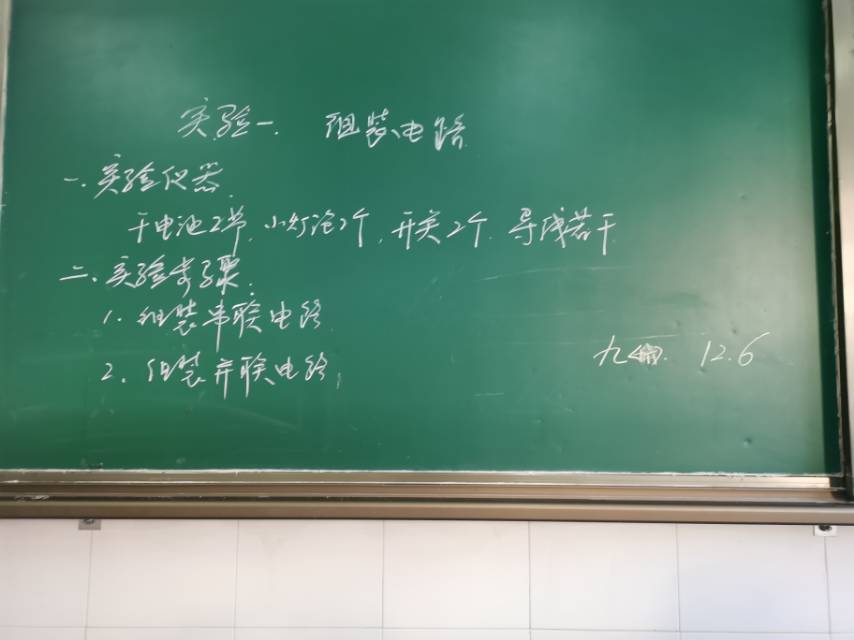 实验一. 组装电路
一、实验仪器
干电池2节, 小灯泡2个, 开关2个, 导线若干
二、实验步骤
1. 组装串联电路
2. 组装并联电路
九 12.6